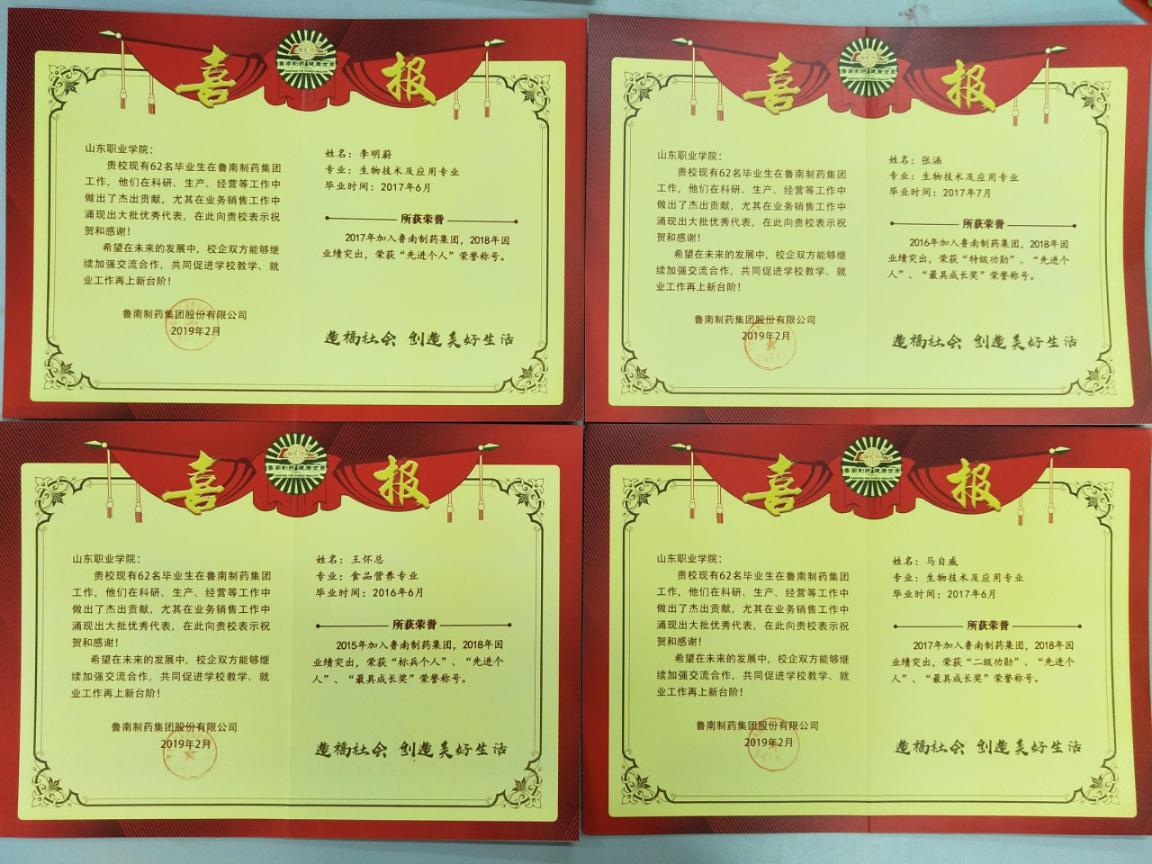 喜报
鲁南制药 健康世界
山东职业学院：
贵校现有62名毕业生在鲁南制药集团
工作，他们在科研、生产、经营等工作中
做出了杰出贡献，尤其在业务销售工作中
涌现出大批优秀代表，在此向贵校表示祝
贺和感谢！
希望在未来的发展中，校企双方能够继
续加强交流合作，共同促进学校教学、就
业工作再上新台阶！
鲁南制药集团股份有限公司
2019年2月
姓名：李明蔚
专业：生物技术及应用专业
毕业时间：2017年6月
所获荣誉
2017年加入鲁南制药集团，2018年因
业绩突出，荣获“先进个人”荣誉称号。
造福社会 创造美好生活
喜报
鲁南制药 健康世界
山东职业学院：
贵校现有62名毕业生在鲁南制药集团
工作，他们在科研、生产、经营等工作中
做出了杰出贡献，尤其在业务销售工作中
涌现出大批优秀代表，在此向贵校表示祝
贺和感谢！
希望在未来的发展中，校企双方能够继
续加强交流合作，共同促进学校教学、就
业工作再上新台阶！
鲁南制药集团股份有限公司
2019年2月
姓名：张涵
专业：生物技术及应用专业
毕业时间：2017年7月
所获荣誉
2016年加入鲁南制药集团，2018年因
业绩突出，荣获“特级功勋”、“先进个
人”、“最具成长奖”荣誉称号。
造福社会 创造美好生活
喜报
鲁南制药 健康世界
山东职业学院：
贵校现有62名毕业生在鲁南制药集团
工作，他们在科研、生产、经营等工作中
做出了杰出贡献，尤其在业务销售工作中
涌现出大批优秀代表，在此向贵校表示祝
贺和感谢！
希望在未来的发展中，校企双方能够继
续加强交流合作，共同促进学校教学、就
业工作再上新台阶！
鲁南制药集团股份有限公司
2019年2月
姓名：王怀总
专业：食品营养专业
毕业时间：2016年6月
所获荣誉
2015年加入鲁南制药集团，2018年因
业绩突出，荣获“标兵个人”、“先进个
人”、“最具成长奖”荣誉称号。
造福社会 创造美好生活
喜报
鲁南制药 健康世界
山东职业学院：
贵校现有62名毕业生在鲁南制药集团
工作，他们在科研、生产、经营等工作中
做出了杰出贡献，尤其在业务销售工作中
涌现出大批优秀代表，在此向贵校表示祝
贺和感谢！
希望在未来的发展中，校企双方能够继
续加强交流合作，共同促进学校教学、就
业工作再上新台阶！
鲁南制药集团股份有限公司
2019年2月
姓名：马自威
专业：生物技术及应用专业
毕业时间：2017年6月
所获荣誉
2017年加入鲁南制药集团，2018年因
业绩突出，荣获“二级功勋”、“先进个
人”、“最具成长奖”荣誉称号。
造福社会 创造美好生活